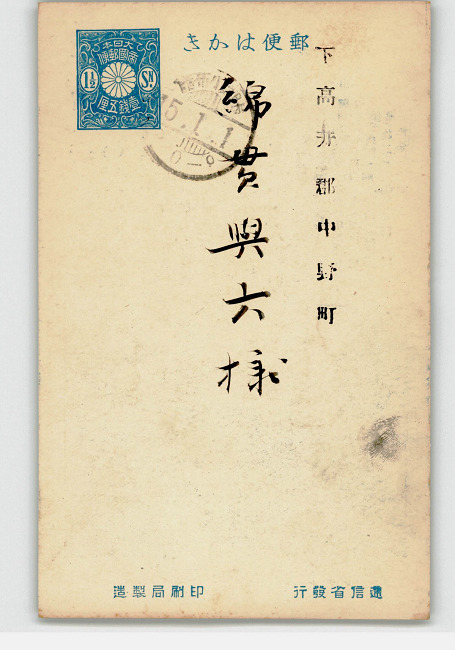 郵便はかき
大日本
帝國郵便
1½ Sn
壹錢五厘
15.1.1
下高井郡中野町
綿貫與六様
遞信省發行
印刷局製造